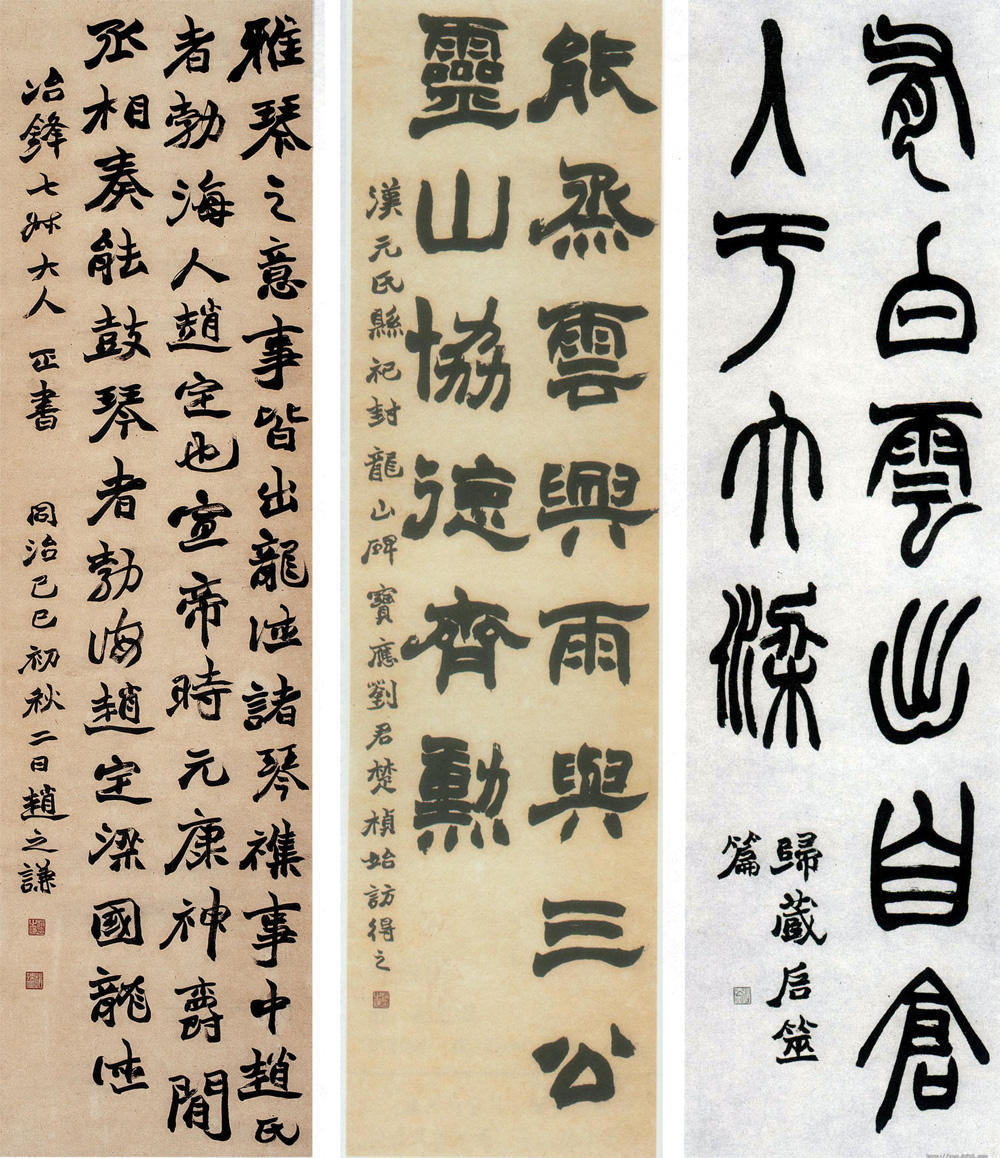 有白雲出自倉
入于大梁
歸藏启筮
篇
能烝雲興雨與三公
靈山協德齊勳
漢元氏縣祀封龍山碑寶應劉君楚楨始訪得之
雅琴之意事皆出龍德諸琴襍事中趙氏
者勃海人趙定也宣帝時元康神爵閒
丞相奏能鼓琴者勃海趙定梁國龍德
冶鋒七叔大人正書 同治己巳初秋二日趙之謙